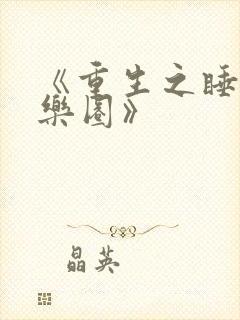 《重生之睡
樂園》
晶英